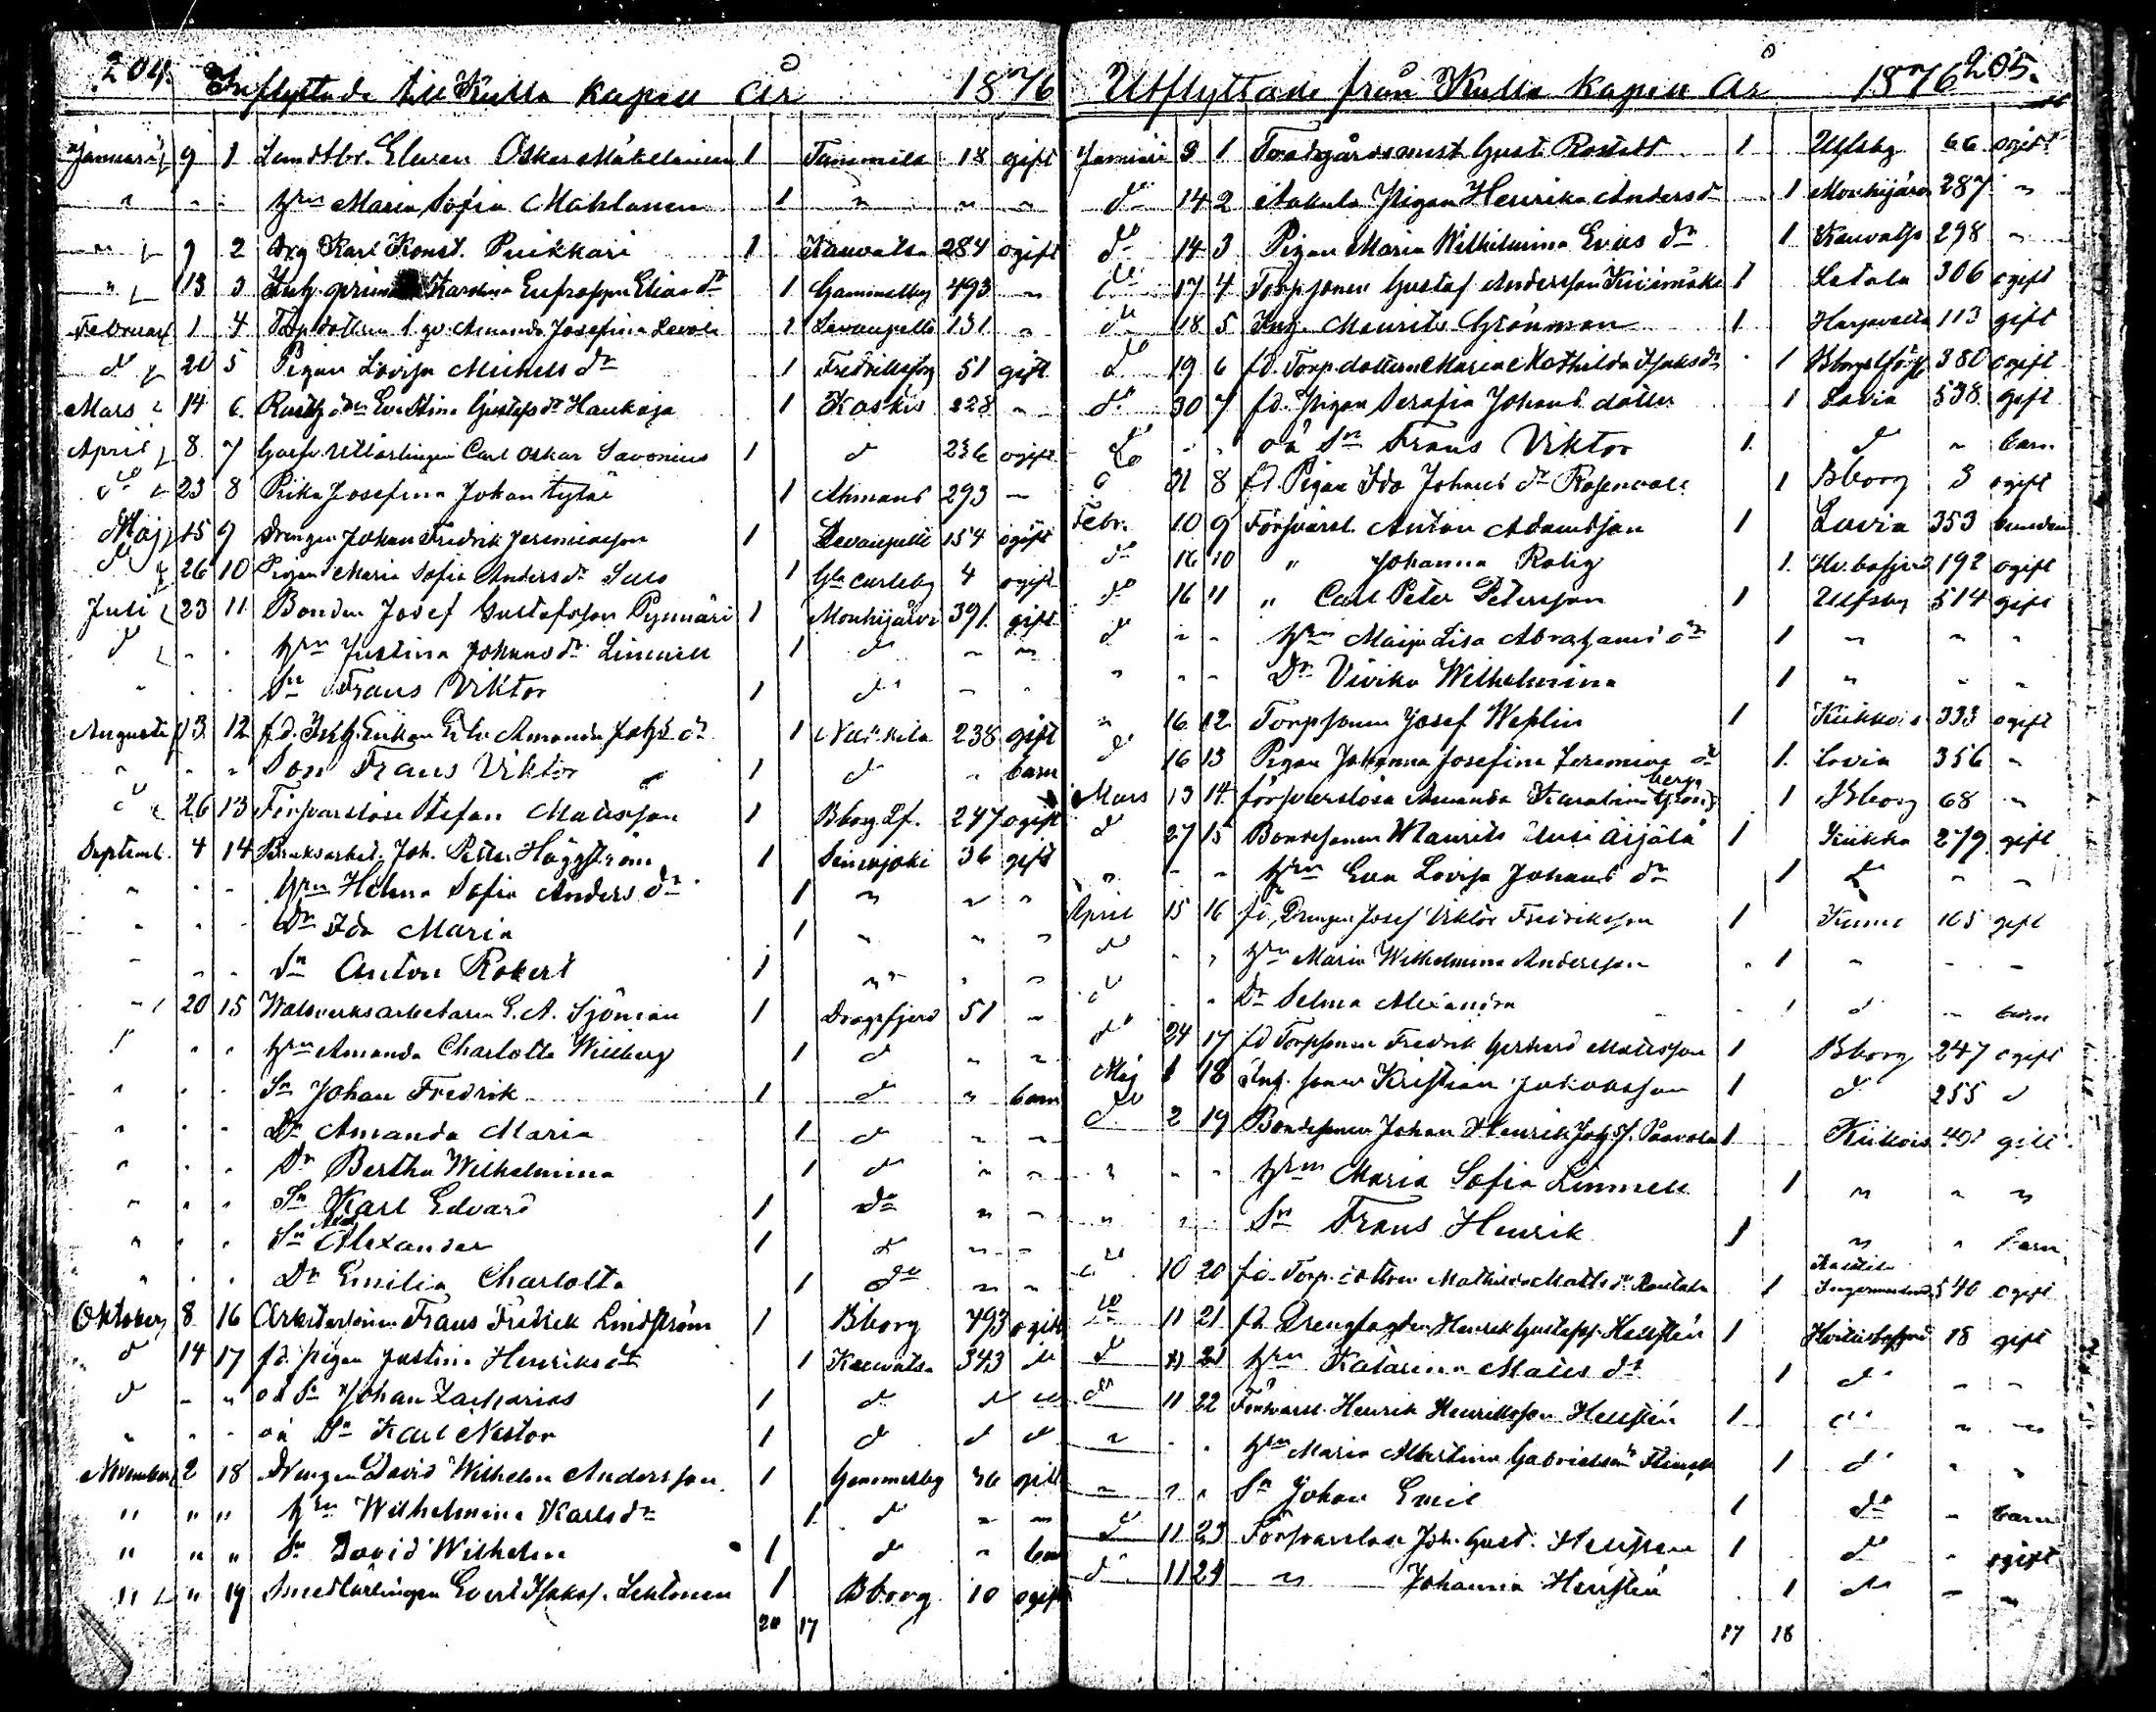 204. Inflyttade till Kulla kapell År 1876
Januari 9 1 Landtbr. Elaren Oskar Mäkeläinen 1 Tammela 18 gift
" " " hrn Maria Sofia Mahlanen 1 " " "
" 9 2 Drg Karl Konst. Puikkari 1 Kauvatsa 284 ogift
" 13 3 Inh. Karolina Eufrosyna Elias dr 1 Gammelby 493 "
Februari 1 4 Torpdottren Amanda Josefina Levola 1 Levanpelto 131 "
d 20 5 Pigan Lovisa Michels dr 1 Fredriksby 51 gift
Mars 14 6 Eva Stina Gustafs dr Haukoja 1 Kaskis 228 "
April 8 7 Garfv. Carl Oskar Savonius 1 d 236 ogift
do 23 8 Josefina Johan 1 Ahmans 293 "
Maj 15 9 Drengen Johan Fredrik Jeremiasson 1 Levanpelto 154 ogift
do 26 10 Pigan Maria Sofia Anders dr Salo 1 Gla Carleby 4 ogift
Juli 23 11 Bonden Josef Gustafsson Pynnäri 1 Mouhijärvi 391 gift
d " " hrn Justina Johans dr Linnell 1 d " "
" " " Sn Frans Viktor 1 d " "
Augusti 13 12 fd. Inh. Enkan Eva Amanda Johs dr 1 238 gift
" " " Son Frans Viktor 1 d " barn
d 26 13 Försvarslöse Stefan Matisson 1 Bborg Lf. 247 ogift
Septemb. 4 14 Bruksarbet. Joh. Petter Häggström 1 Seinäjoki 36 gift
" " " hrn Helena Sofia Anders dr 1 " " "
" " " Dr Ida Maria 1 " " "
" " " Sn Anton Robert 1 " " "
" 20 15 Walsverksarbetaren G. A. Sjöman 1 Dragsfjerd 51 "
" " " hrn Amanda Charlotta Willberg 1 d " "
" " " Sn Johan Fredrik 1 d " barn
" " " Dr Amanda Maria 1 d " "
" " " Dr Bertha Wilhelmina 1 d " "
" " " Sn Karl Edvard 1 do " "
" " " Sn Axel Alexander 1 d " "
" " " Dr Emilia Charlotta 1 do " "
Oktober 8 16 Arbetarsonen Frans Fredrik Lindström 1 Bborg 493 ogift
d 14 17 fd. pigan Justina Henriks dr 1 Kauvatsa 343 d
d " " oä Sn Johan Zacharias 1 d d d
" " " oä Sn Karl Nestor 1 d d d
November 2 18 Drengen David Wilhelm Andersson 1 Gammelby 36 gift
" " " hrn Wilhelmina Karls dr 1 d " "
" " " Sn David Wilhelm 1 d " barn
" " 19 Smedlärlingen Evert Isaks. Lehtonen 1 Bborg 10 ogift
20 17
Utflyttade från Kulla Kapell År 1876 205.
Januari 9 1 Trädgårdsmest. Gust. Rostedt 1 Ulfsby 66 ogift
do 14 2 Pigan Henrika Anders dr 1 Mouhijärvi 287 "
do 14 3 Pigan Maria Wilhelmina Evas dr 1 Kauvatsa 298 "
do 17 4 Torpsonen Gustaf Andersson Kiiimäki 1 Letala 306 ogift
do 18 5 Inh. Maurits Grönman 1 Harjavalta 113 gift
do 19 6 fd. Torp.dottren Maria Mathilda Isaks dr 1 380 ogift
do 30 7 fd. Pigan Serafia Johans dotter 1 Lavia 538 gift
do " " oä Sn Frans Viktor 1 d " barn
d 31 8 fd. Pigan Ida Johans dr Rosenvall 1 Bborg 3 ogift
Febr. 10 9 Försvarsl. Anton Adamsson 1 Lavia 353
do 16 10 " Johanna Rolig 1 Hv.bofjerd 192 ogift
do 16 11 " Carl Peter Petersson 1 Ulfsby 514 gift
d " " hrn Maija Lisa Abrahams dr 1 " " "
" " " Dr Vivika Wilhelmina 1 " " "
" 16 12 Torpsonen Josef Wehlin 1 Kiikkois 333 ogift
d 16 13 Pigan Johanna Josefina Jeremias dr 1 Lavia 356 "
Mars 13 14 försvarslösa Amanda Karolina Grönberg 1 Bborg 68 "
d 27 15 Bondesonen Maurits Uusi Äijälä 1 Kiikka 279 gift
" " " hrn Eva Lovisa Johans dr 1 d " "
April 15 16 fd. Drengen Josef Viktor Fredriksson 1 Kumo 105 gift
do " " hrn Maria Wilhelmina Andersson 1 " " "
d " " Dr Selma Alexandra 1 d " barn
do 24 17 fd Torpsonen Fredrik Gerhard Matisson 1 Bborg 247 ogift
Maj 1 18 Inh. sonen Kristian Jakobsson 1 d 255 d
do 2 19 Bondesonen Johan Henrik Johs s. Paavola 1 Kiikois 401 gift
" " " hrn Maria Sofia Linnell 1 " " "
" " Sn Frans Henrik 1 " " barn
do 10 20 fd. Torp.dottren Mathilda Matts dr Rautala 1 540 ogift
do 11 21 fd Drengfogden Henrik Gustafss. Hellstén 1 Hvittisbofjerd 18 gift
d 11 21 hrn Katarina Matts dr 1 d " "
do 11 22 Försvarsl. Henrik Henriksson Hellstén 1 d " "
" " " hrn Maria Albertina Gabrielsdr Flinck 1 d " "
" " " Sn Johan Emil 1 do " barn
d 11 23 Försvarslöse Joh. Gust. Hellsten 1 d " ogift
d 11 24 " Johanna Hellstén 1 d " "
17 18